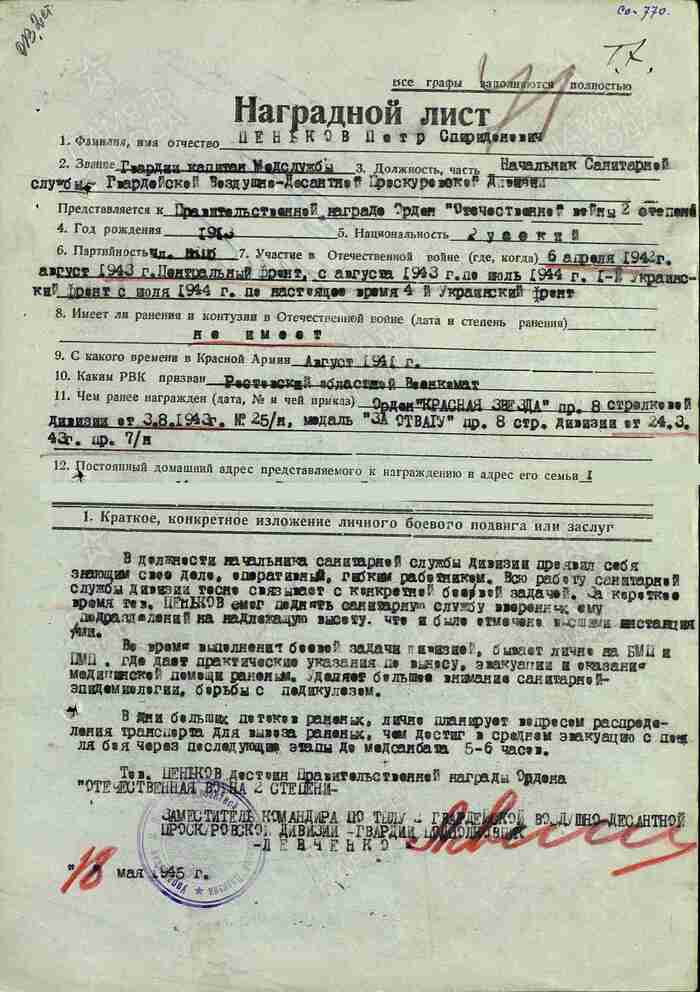 Со- 770.
Все графы заполняются полностью
Наградной лист
1. Фамилия, имя отчество ПЕНЬКОВ Петр Спиридонович
2. Звание Гвардии капитан Медслужбы 3. Должность, часть Начальник Санитарной
службы Гвардейской Воздушно-Десантной Проскуровской Дивизии
Представляется к Правительственной награде Орден "Отечественной войны 2 степени
4. Год рождения 1913 5. Национальность Русский
6. Партийность чл. ВКПб 7. Участие в Отечественной войне (где, когда) 6 апреля 1942г.
август 1943 г.Центральный фронт, с августа 1943 г.по июль 1944 г. I-й Украинс-
кий фронт с июля 1944 г. по настоящее время 4 й Украинский фронт
8. Имеет ли ранения и контузии в Отечественной войне (дата и степень ранения)
не имеет
9. С какого времени в Красной Армии Август 1941 г.
10. Каким РВК призван Ростовский областной Военкомат
11. Чем ранее награжден (дата, № и чей приказ) Орден "КРАСНАЯ ЗВЕЗДА" пр. 8 стрелковой
дивизии от 3.8.1943г. № 25/н, медаль "ЗА ОТВАГУ" пр. 8 стр. дивизии от 24.3.
43г. пр. 7/н
12. Постоянный домашний адрес представляемого к награждению и адрес его семьи
1. Краткое, конкретное изложение личного боевого подвига или заслуг
В должности начальника санитарной службы дивизии проявил себя
знающим свое дело, оперативный, гибким работником. Всю работу санитарной
службы дивизии тесно связывает с конкретной боевой задачей. За короткое
время тов. ПЕНЬКОВ смог поднять санитарную службу вверенных ему
подразделений на надлежащую высоту. что и было отмечено высшими инстанция
ями.
Во время выполнения боевой задачи дивизией, бывает лично на БМП и
ПМП . где дает практические указания по выносу, эвакуации и оказании
медицинской помощи раненым. Уделяет большое внимание санитарной-
эпидемиологии, борьбы с педикулезом.
В дни больших потоков раненых, лично планирует вопросом распреде-
ления транспорта для вывоза раненых, чем достиг в среднем эвакуацию с по
ля боя через последующие этапы до медсанбата 5-6 часов.
Тов. ПЕНЬКОВ достоин Правительственной награды Ордена
"ОТЕЧЕСТВЕННАЯ ВОЙНА 2 СТЕПЕНИ-
ЗАМЕСТИТЕЛЬ КОМАНДИРА ПО ТЫЛУ 2 ГВАРДЕЙСКОЙ ВОЗДУШНО-ДЕСАНТНОЙ
ПРОСКУРОВСКОЙ ДИВИЗИИ -ГВАРДИИ ПОДПОЛКОВНИК
-ЛЕВЧЕНКО-
"18 мая 1945 г.